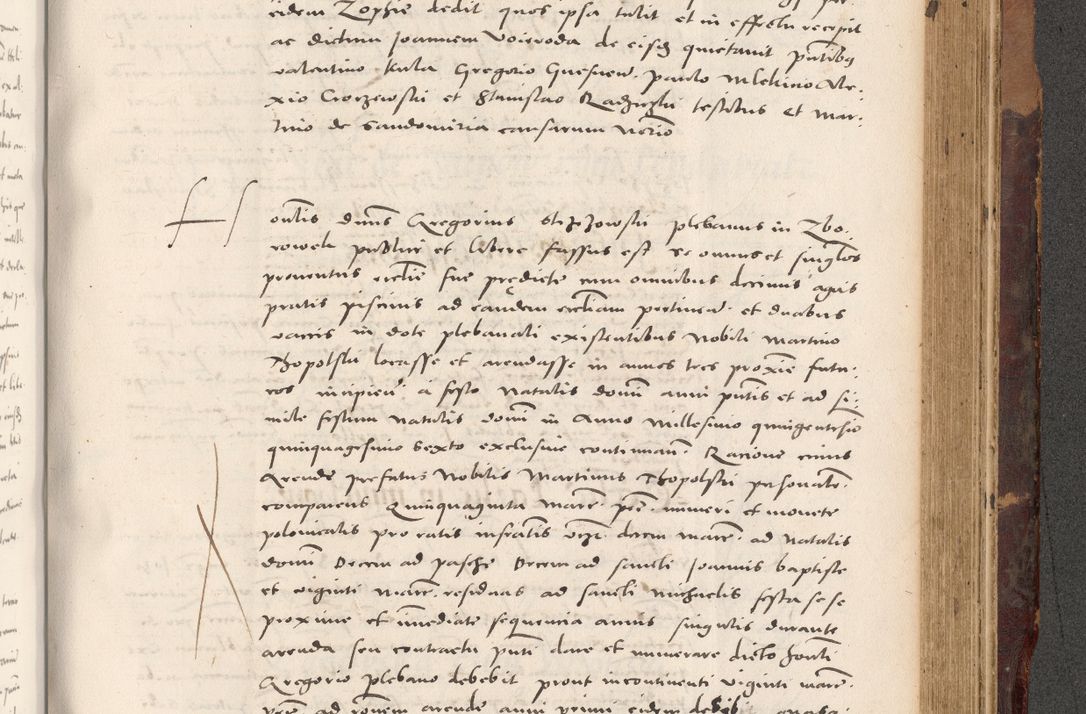 eidem Zophie dedit quos ipsa tulit et in effectu recepit
ac dictum Joannem Voievoda de eisdem quietavit pntibus
valentino Kula Gregorio Gnesnen. paulo Mlekino Ale-
xio Crorzewski et Stanislao Radziczki testibus et Mar-
tino de Sandomiria causarum Notario
Honlis dnns Gregorius Strzezowski plebanus in Zbo-
rowek publice et libere fassus est Se omnes et singulos
proventus ecclie sue predicte cum omnibus decimis agris
pratis piscinis ad eandem eccliam pertinen. et duabus
vaccis in dote plebanali existentibus Nobili Martino
Thopolski locasse et arendasse in annos tres proxime futu-
ros incipien. a festo Natalis domini anni pntis et ad si-
mile festum Natalis domini in Anno Millesimo quingentesimo
quinquagesimo Sexto exclusive continuan. Racione cuius
Arende prefatus Nobilis Martinus Thopolski personalr.
comparens Quinquaginta Marc. pec. numeri et monete
polonicalis pro ratis infratis videlicet decem marc. ad Natalis
domini Decem ad pasche Decem ad sancti Joannis baptiste
et viginti marc. residuas ad sancti Michaelis festa se se
proxime et immediate sequencia annis singulis durante
arenda seu contractu pnti dare et numerare dicto honli
Gregorio plebano debebit prout incontinenti viginti marc.
pec. ad ronem arende anni primi eidem debit